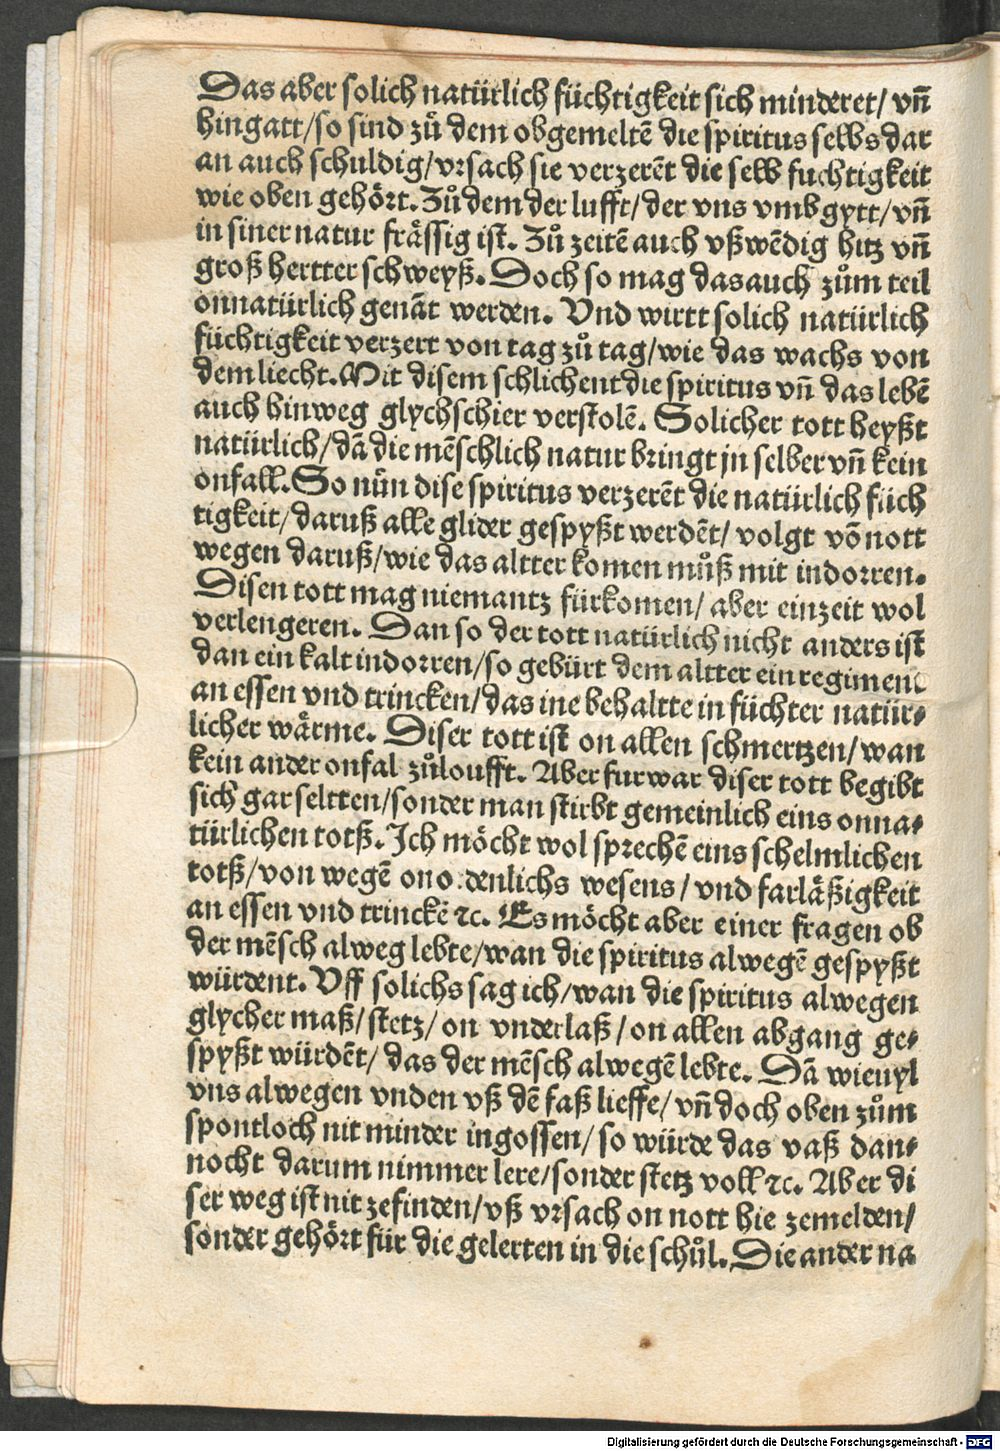 Das aber solich natürlich füchtigkeit sich minderet/ vñ
hingatt/so sind zů dem obgemeltẽ die spiritus selbs dar
an auch schuldig/vrsach sie verzerẽt die selb fuchtigkeit
wie oben gehört. Zů dem der lufft/der vns vmbgytt/vñ
in siner natur frässig ist. Zů zeitẽ auch vßwẽdig hitz vñ
groß hertter schweyß. Doch so mag das auch zům teil
onnatürlich genãt werden. Vnd wirtt solich natürlich
füchtigkeit verzert von tag zů tag/wie das wachs von
dem liecht. Mit disem schlichent die spiritus vñ das lebẽ
auch hinweg glychschier verstolẽ. Solicher tott heyßt
natürlich/dã die mẽschlich natur bringt jn selber vñ kein
onfall. So nůn dise spiritus verzerẽt die natürlich füch
tigkeit/daruß alle glider gespyßt werdẽt/ volgt võ nott
wegen daruß/wie das altter komen můß mit indorren.
Disen tott mag niemantz fürkomen/ aber ein zeit wol
verlengeren. Dan so der tott natürlich nicht anders ist
dan ein kalt indorren/so gebürt dem altter ein regiment
an essen vnd trincken/das ine behaltte in füchter natür-
licher wärme. Diser tott ist on allen schmertzen/wan
kein ander onfal zůloufft. Aber furwar diser tott begibt
sich gar seltten/sonder man stirbt gemeinlich eins onna-
türlichen totß. Ich möcht wol sprechẽ eins schelmlichen
totß/von wegẽ ono denlichs wesens/ vnd farläßigkeit
an essen vnd trinckẽ ꝛc. Es möcht aber einer fragen ob
der mẽsch alweg lebte/wan die spiritus alwegẽ gespyßt
würdent. Vff solichs sag ich/wan die spiritus alwegen
glycher maß/stetz/on vnderlaß/on allen abgang ge-
spyßt würdẽt/ das der mẽsch alwegẽ lebte. Dã wievyl
vns alwegen vnden vß dẽ faß lieffe/vñ doch oben zům
spontloch nit minder ingossen/so würde das vaß dan-
nocht darum nimmer lere/sonder stetz voll ꝛc. Aber di
ser weg ist nit zefinden/vß vrsach on nott hie zemelden/
sonder gehört für die gelerten in die schůl. Die ander na
Digitalisierung gefördert durch die Deutsche Forschungsgemeinschaft - DFG